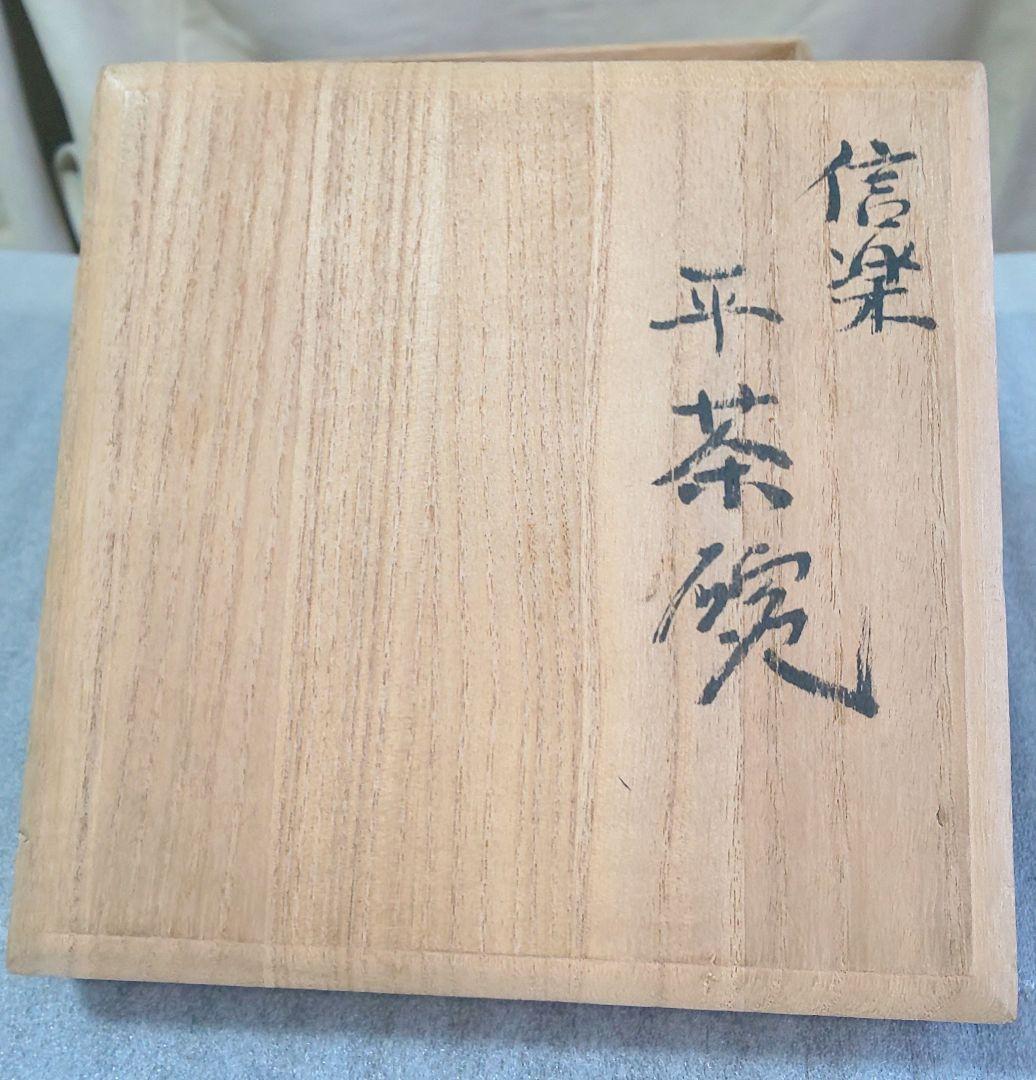 信楽
平茶碗